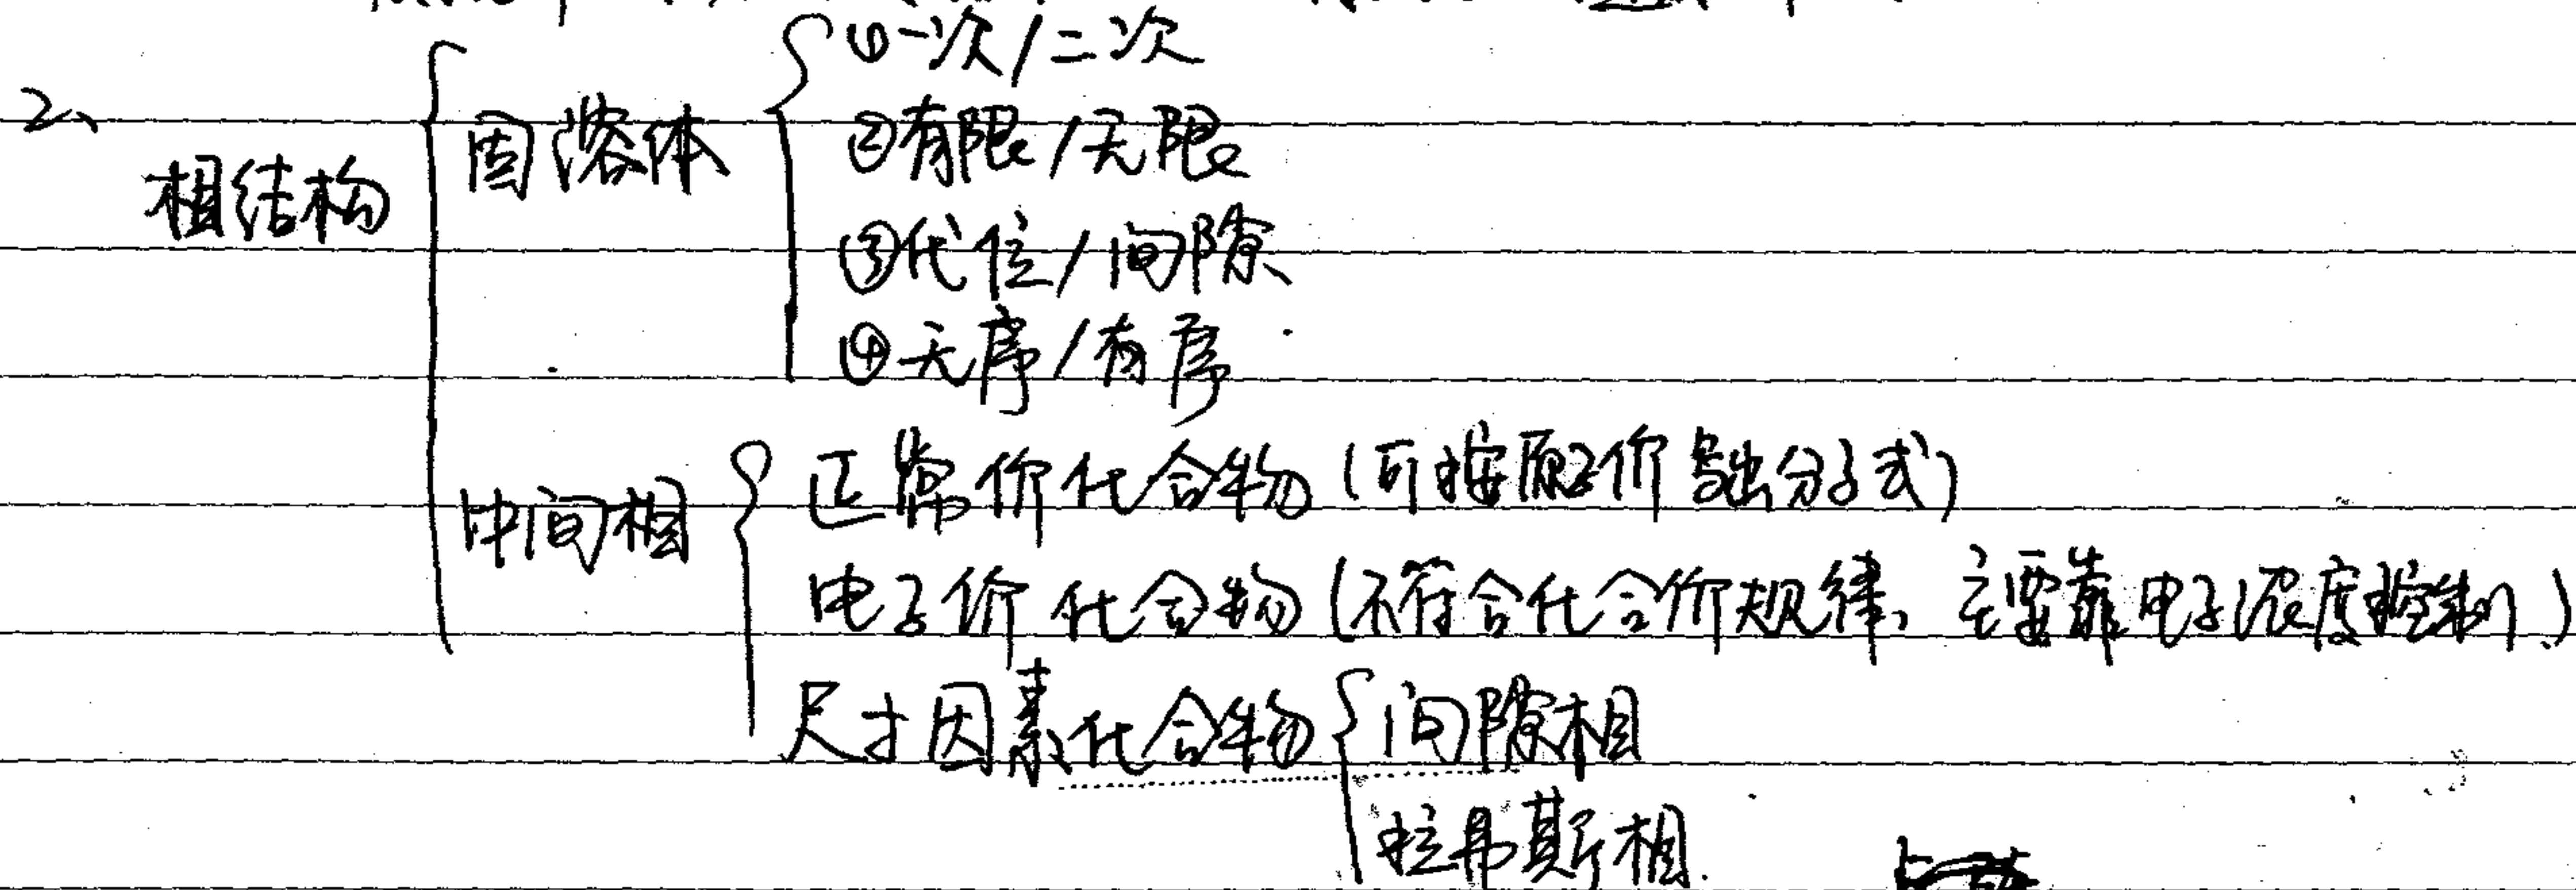 2、
相结构
固溶体
①一次/二次
②有限/无限
③代位/间隙
④无序/有序
中间相
正常价化合物(可按原子价写出分子式)
电子价化合物(不符合化合价规律、主要靠电子浓度控制.)
尺寸因素化合物
间隙相
拉弗斯相.